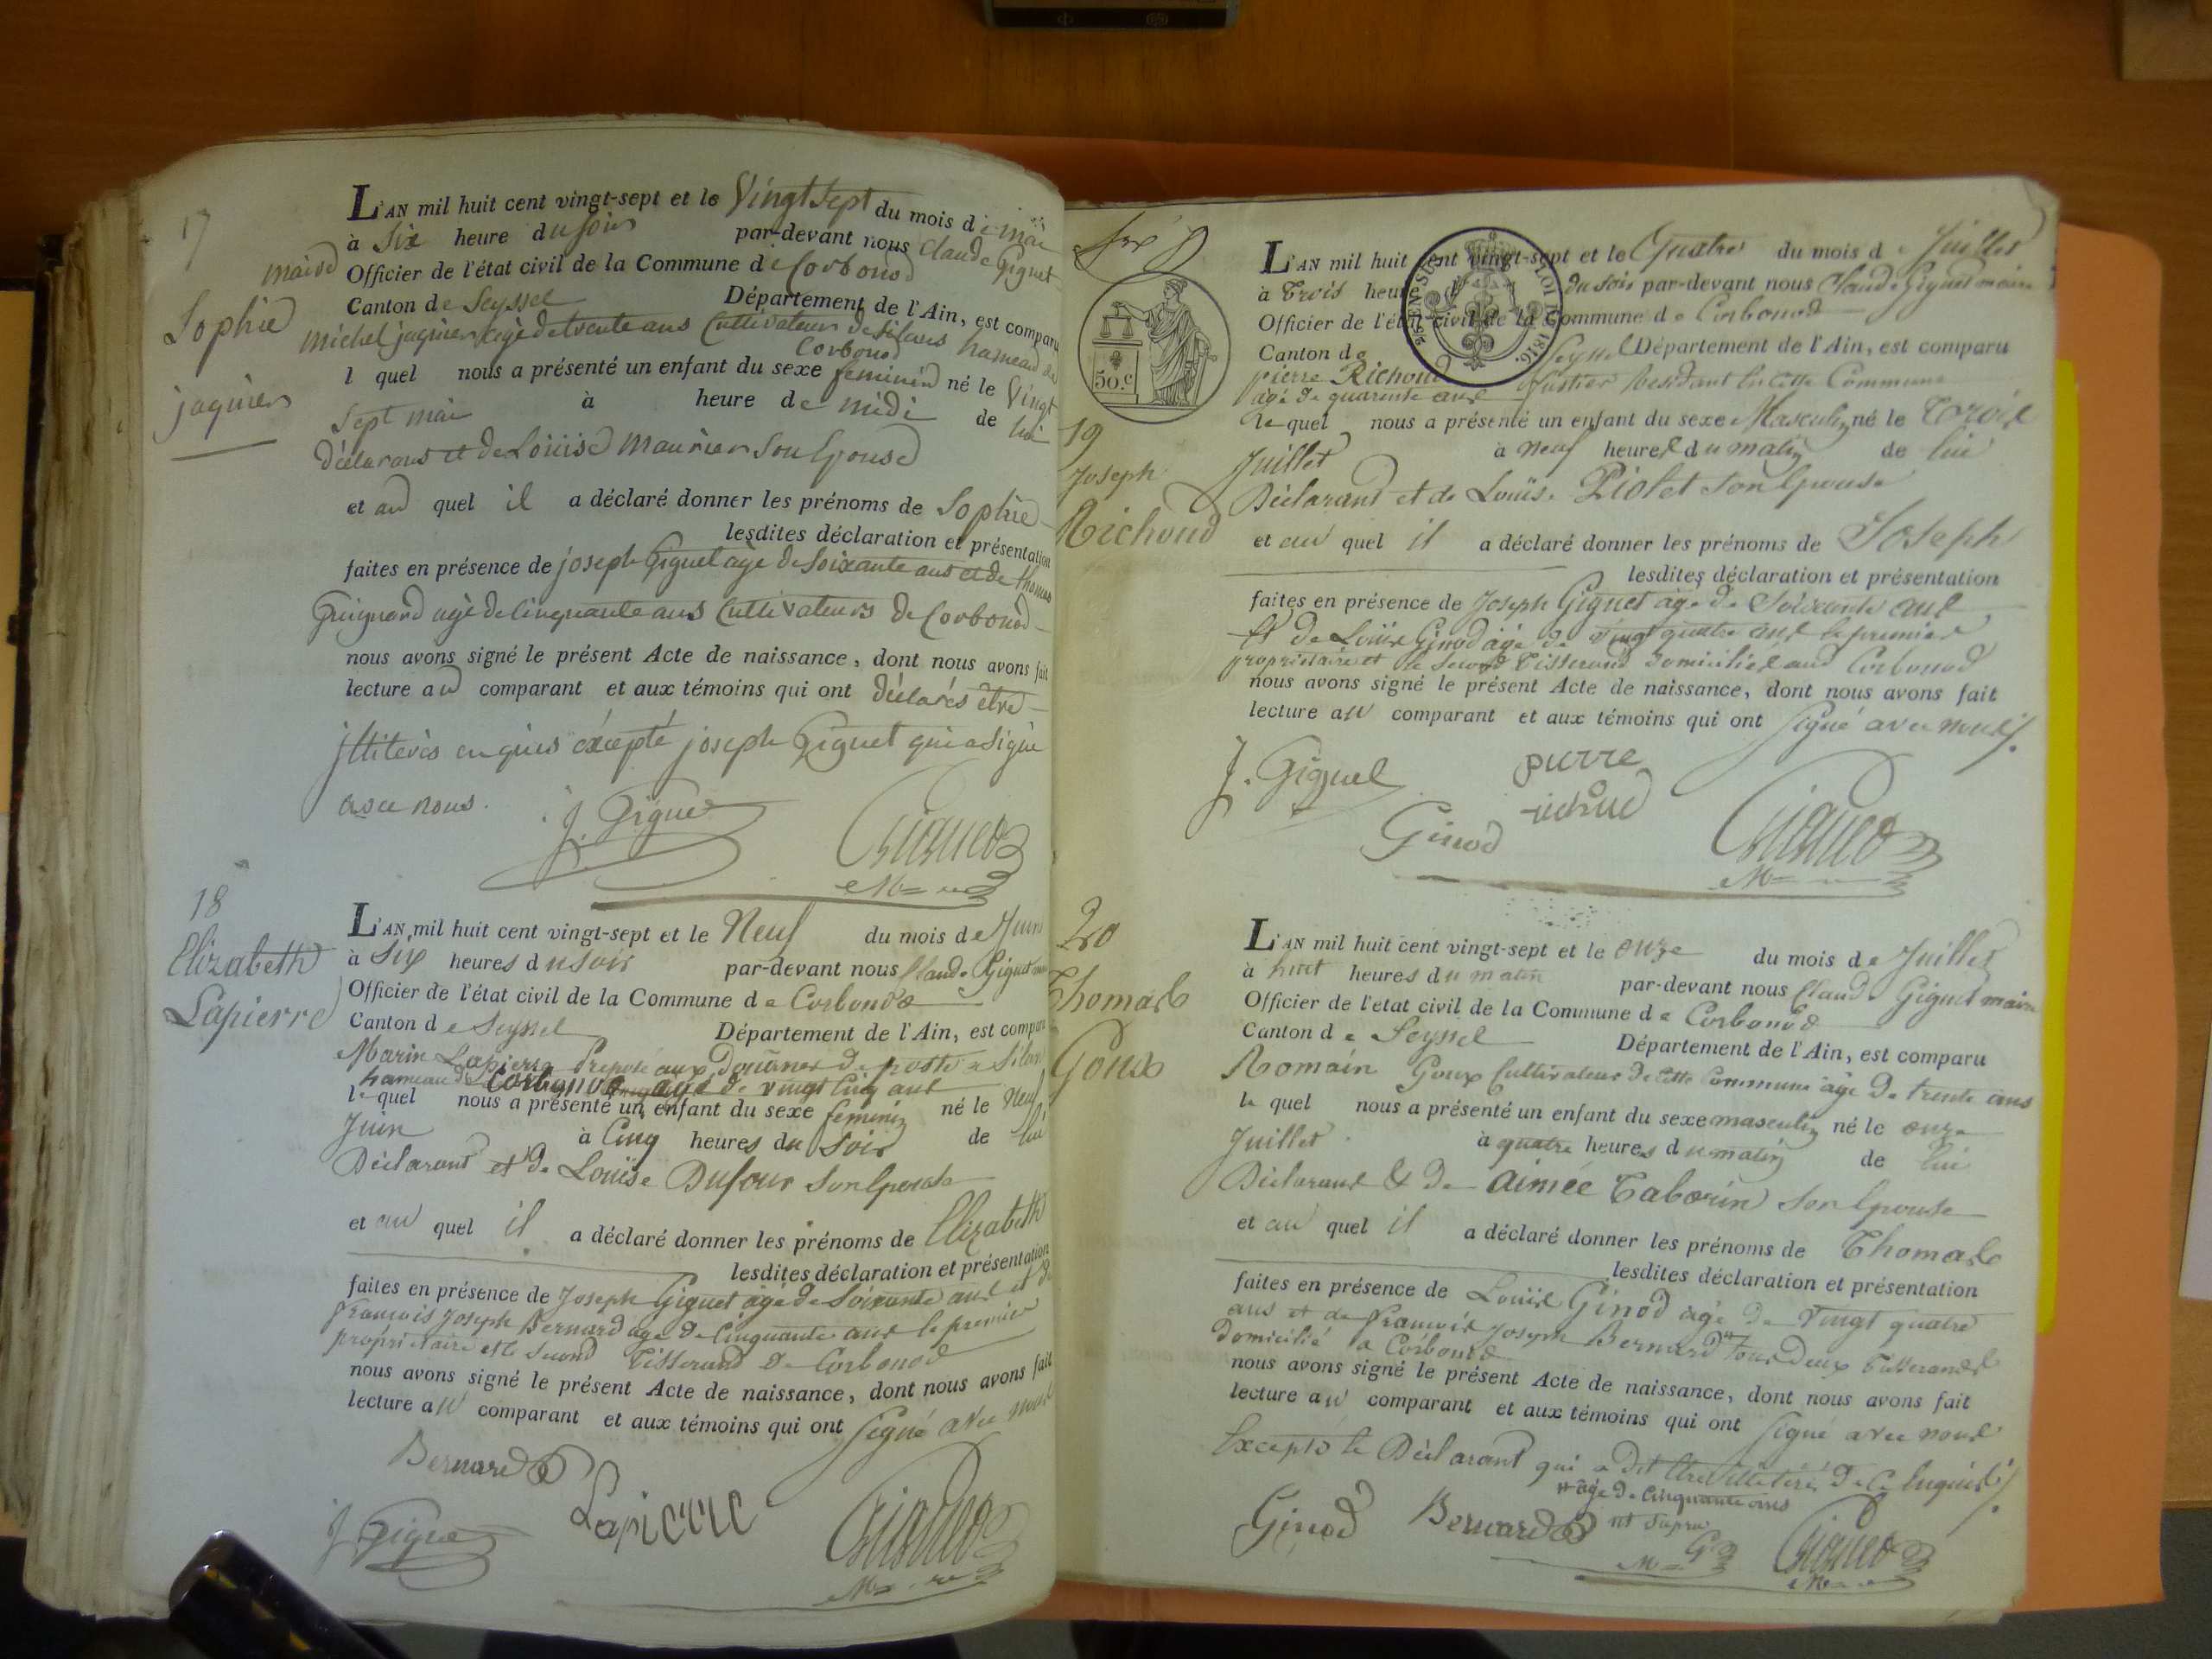 17
Sophie
jaguier
L'AN mil huit cent vingt-sept et le Vingt Sept du mois de mai
à Six heure du soir par-devant nous Claude Giguet
maire Officier de l'état civil de la Commune de Corbonod
Canton de Seyssel Département de l'Ain, est comparu
michel jaguier agé de trente ans Cultivateur de Silans hameau de
Corbonod
l quel nous a présenté un enfant du sexe feminin né le Vingt
Sept mai à heure de midi de lui
déclarant et de Louise maurier son Epouse
et au quel il a déclaré donner les prénoms de Sophie
lesdites déclaration et présentation
faites en présence de joseph Giguet agé de soixante ans et de thomas
Guignard agé de Cinquante ans Cultivateurs de Corbonod
nous avons signé le présent Acte de naissance, dont nous avons fait
lecture au comparant et aux témoins qui ont déclarés être
illiterés enquis éxcepté joseph Giguet qui a signé
avec nous.
J. Giguet
Giguet
18
Elizabeth
Lapierre
L'AN mil huit cent vingt-sept et le Neuf du mois de Juin
à Six heures du soir par-devant nous Claude Giguet maire
Officier de l'état civil de la Commune de Corbonod
Canton de Seyssel Département de l'Ain, est comparu
Marin Lapierre Preposé aux Douanes de poste a Silans
hameau de Corbonod agé de vingt Cinq ans
le quel nous a présenté un enfant du sexe feminin né le Neuf
Juin à Cinq heures du Soir de lui
Déclarant et de Louïse Dufour son Epouse
et au quel il a déclaré donner les prénoms de Elizabeth
lesdites déclaration et présentation
faites en présence de Joseph Giguet agé de Soixante ans et de
francois Joseph Bernard agé de Cinquante ans le premier
propriétaire et le Second Tisserand de Corbonod
nous avons signé le présent Acte de naissance, dont nous avons fait
lecture au comparant et aux témoins qui ont signé avec nous
Bernard
J. Giguet
Lapierre
Giguet
50.c
LOI DE 1816.
19
Joseph
Richoud
L'AN mil huit cent vingt-sept et le Quatre du mois de Juillet
à trois heure du soir par-devant nous Claude Giguet maire
Officier de l'état civil de la Commune de Corbonod
Canton de Seyssel Département de l'Ain, est comparu
pierre Richoud Résidant en Cette Commune
agé de quarente ans
le quel nous a présenté un enfant du sexe Masculin né le trois
Juillet à neuf heures du matin de lui
Déclarant et de Louïse Piolet son Epouse
et au quel il a déclaré donner les prénoms de Joseph
lesdites déclaration et présentation
faites en présence de Joseph Giguet agé de Soixante ans
et de Louis Ginod agé de vingt quatre ans le premier
propriétaire et le Second Tisserand domiciliés aud Corbonod
nous avons signé le présent Acte de naissance, dont nous avons fait
lecture au comparant et aux témoins qui ont Signé avec nous
J. Giguet
pierre
richoud
Ginod
Giguet
20
Thomas
Goux
L'AN mil huit cent vingt-sept et le onze du mois de Juillet
à huit heures du matin par-devant nous Claude Giguet maire
Officier de l'etat civil de la Commune de Corbonod
Canton de Seyssel Département de l'Ain, est comparu
Romain Goux Cultivateur de Cette Commune agé de trente ans
le quel nous a présenté un enfant du sexe masculin né le onze
Juillet à quatre heures du matin de lui
Déclarant & de aimée Taborin son Epouse
et au quel il a déclaré donner les prénoms de Thomas
lesdites déclaration et présentation
faites en présence de Louis Ginod agé de Vingt quatre
ans et de francois Joseph Bernard tous deux Tisserands
domicilié a Corbonod
nous avons signé le présent Acte de naissance, dont nous avons fait
lecture au comparant et aux témoins qui ont signé avec nous
Excepté le Déclarant qui a dit être illiteré de ce Enquis
agé de Cinquante ans
ut supra
Ginod
Bernard
G
Giguet